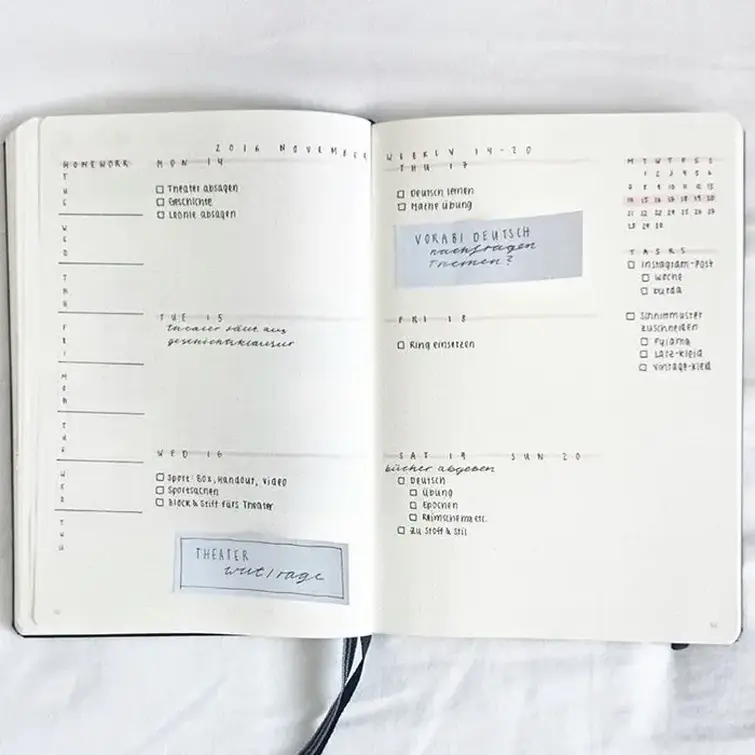 2016 NOVEMBER
HOMEWORK
TUE
WED
THU
FRI
MON
TUE
WED
THU
MON 14
Theater absagen
Geschichte
Leonie absagen
TUE 15
theater fällt aus
geschichtsklausur
WED 16
Sport: Box, Handout, Video
Sportsachen
Block & Stift fürs Theater
THEATER
WEEKLY 14-20
THU 17
Deutsch lernen
Mathe Übung
VORABI DEUTSCH
nachfragen
Themen?
FRI 18
Ring einsetzen
SAT 19 SUN 20
bücher abgeben
Deutsch
Übung
Epochen
Reimschema etc.
zu Stoff & Stil
M T W T F S S
1 2 3 4 5 6
7 8 9 10 11 12 13
14 15 16 17 18 19 20
21 22 23 24 25 26 27
28 29 30
TASKS
Instagram-Post
Woche
burda
Schnittmuster
zuschneiden
Pyjama
Vintage-Kleid